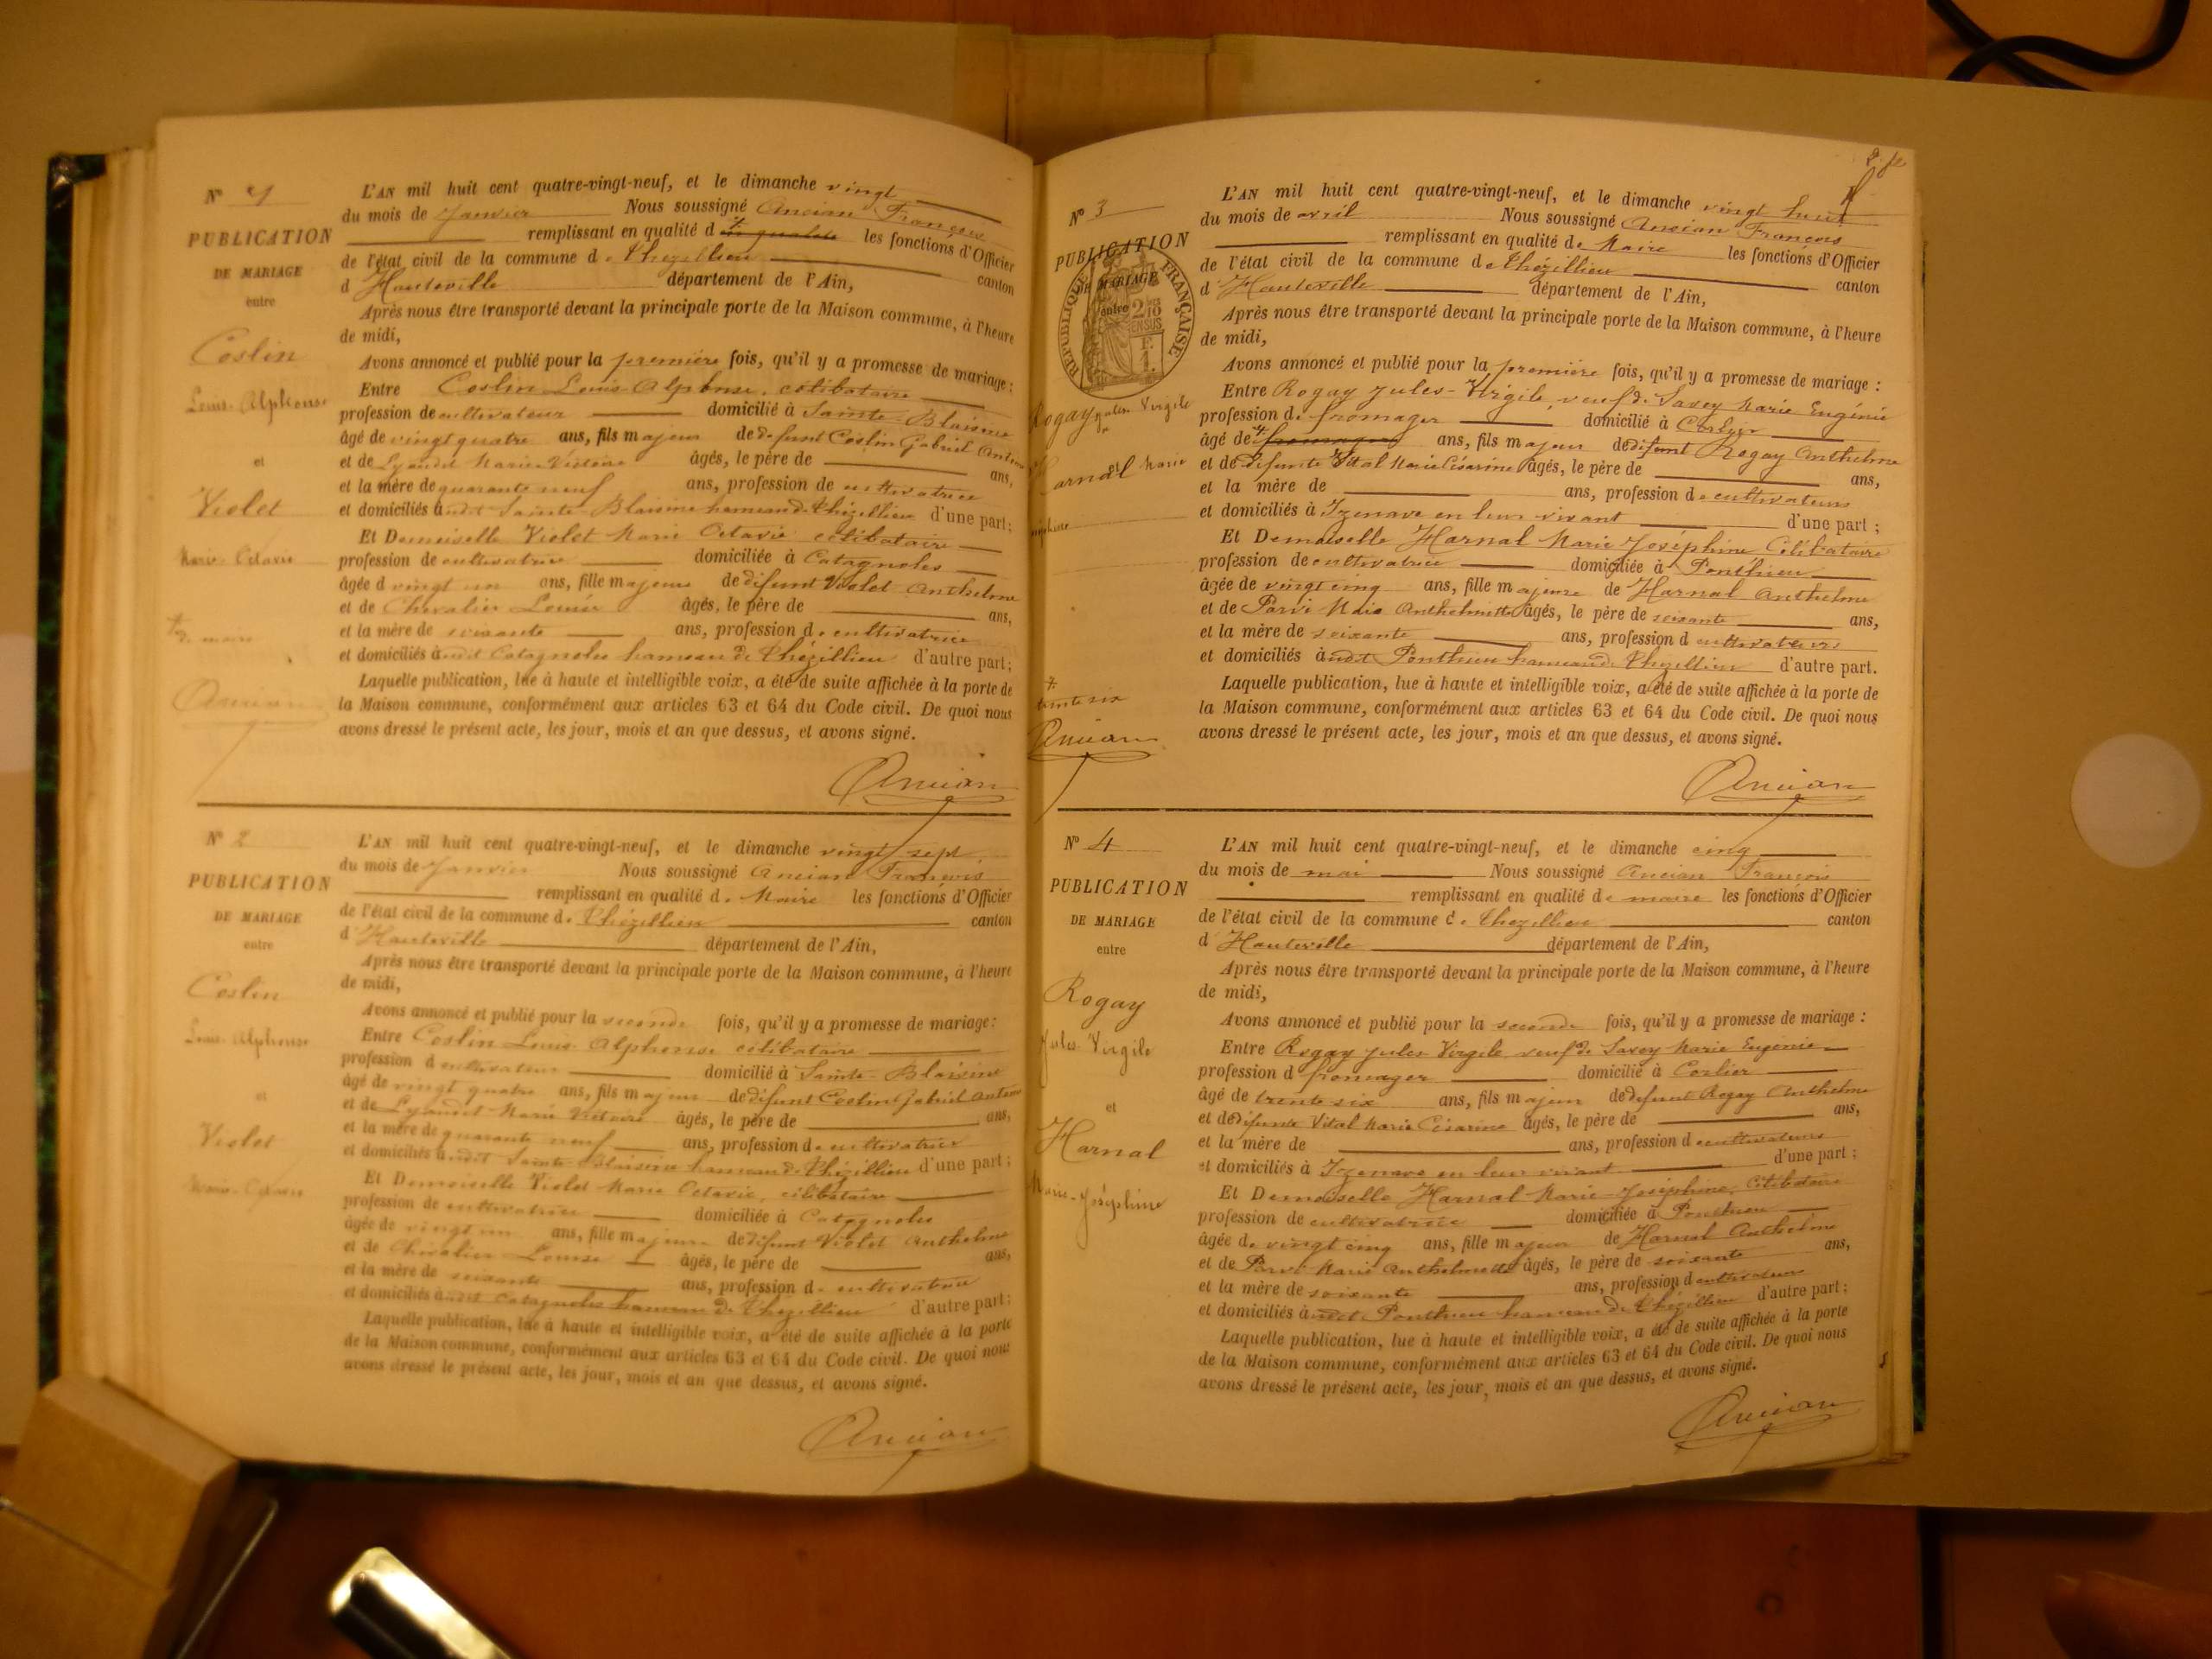 N° 1
PUBLICATION
DE MARIAGE
entre
Coslin
Louis-Alphonse
et
Violet
Marie-Octavie
de maire
Ancian
L'AN mil huit cent quatre-vingt-neuf, et le dimanche vingt
du mois de Janvier Nous soussigné Ancian François
remplissant en qualité d les fonctions d'Officier
de l'état civil de la commune de Thézillieu canton
d'Hauteville département de l'Ain,
Après nous être transporté devant la principale porte de la Maison commune, à l'heure
de midi,
Avons annoncé et publié pour la première fois, qu'il y a promesse de mariage :
Entre Coslin Louis-Alphonse, célibataire
profession de cultivateur domicilié à Sainte-Blaisine
âgé de vingt quatre ans, fils majeur de défunt Coslin Gabriel Antoine
et de Lyaudet Marie Victoire âgés, le père de ans,
et la mère de quarante neuf ans, profession de cultivatrice
et domiciliés audit Sainte-Blaisine hameau de Thézillieu d'une part;
Et Demoiselle Violet Marie Octavie célibataire
profession de cultivatrice domiciliée à Catagnoles
âgée d vingt un ans, fille majeure de défunt Violet Anthelme
et de Chevalier Louise âgés, le père de ans,
et la mère de soixante ans, profession de cultivatrice
et domiciliés audit Catagnoles hameau de Thézillieu d'autre part;
Laquelle publication, lue à haute et intelligible voix, a été de suite affichée à la porte de
la Maison commune, conformément aux articles 63 et 64 du Code civil. De quoi nous
avons dressé le présent acte, les jour, mois et an que dessus, et avons signé.
Ancian
N° 2
PUBLICATION
DE MARIAGE
entre
Coslin
Louis-Alphonse
et
Violet
Marie-Octavie
L'AN mil huit cent quatre-vingt-neuf, et le dimanche vingt sept
du mois de Janvier Nous soussigné Ancian François
remplissant en qualité de Maire les fonctions d'Officier
de l'état civil de la commune de Thézillieu canton
d'Hauteville département de l'Ain,
Après nous être transporté devant la principale porte de la Maison commune, à l'heure
de midi,
Avons annoncé et publié pour la seconde fois, qu'il y a promesse de mariage:
Entre Coslin Louis-Alphonse célibataire
profession d cultivateur domicilié à Sainte-Blaisine
âgé de vingt quatre ans, fils majeur de défunt Coslin Gabriel Antoine
et de Lyaudet Marie Victoire âgés, le père de ans,
et la mère de quarante neuf ans, profession de cultivatrice
et domiciliés audit Sainte-Blaisine hameau de Thézillieu d'une part;
Et Demoiselle Violet Marie Octavie, célibataire
profession de cultivatrice domiciliée à Catagnoles
âgée de vingt un ans, fille majeure de défunt Violet Anthelme
et de Chevalier Louise âgés, le père de ans,
et la mère de soixante ans, profession de cultivatrice
et domiciliés audit Catagnoles hameau de Thézillieu d'autre part;
Laquelle publication, lue à haute et intelligible voix, a été de suite affichée à la porte
de la Maison commune, conformément aux articles 63 et 64 du Code civil. De quoi nous
avons dressé le présent acte, les jour, mois et an que dessus, et avons signé.
Ancian
N° 3
PUBLICATION
DE MARIAGE
entre
RÉPUBLIQUE FRANÇAISE
2/10
EN SUS
F.
1.
Rogay Jules Virgile
et
Harnal Marie
Joséphine
trente six
Ancian
L'AN mil huit cent quatre-vingt-neuf, et le dimanche vingt huit
du mois de avril Nous soussigné Ancian François
remplissant en qualité de Maire les fonctions d'Officier
de l'état civil de la commune de Thézillieu canton
d'Hauteville département de l'Ain,
Après nous être transporté devant la principale porte de la Maison commune, à l'heure
de midi,
Avons annoncé et publié pour la première fois, qu'il y a promesse de mariage :
Entre Rogay Jules-Virgile, veuf de Savey Marie Eugénie
profession de fromager domicilié à Corlier
âgé de fromager ans, fils majeur de défunt Rogay Anthelme
et de défunte Vital Marie Césarine âgés, le père de ans,
et la mère de ans, profession de cultivateurs
et domiciliés à Izenave en leur vivant d'une part ;
Et Demoiselle Harnal Marie Joséphine Célibataire
profession de cultivatrice domiciliée à Ponthieu
âgée de vingt cinq ans, fille majeure de Harnal Anthelme
et de Parvi Marie Anthelmette âgés, le père de soixante ans,
et la mère de soixante ans, profession d cultivateurs
et domiciliés audit Ponthieu hameau de Thézillieu d'autre part.
Laquelle publication, lue à haute et intelligible voix, a été de suite affichée à la porte de
la Maison commune, conformément aux articles 63 et 64 du Code civil. De quoi nous
avons dressé le présent acte, les jour, mois et an que dessus, et avons signé.
Ancian
N° 4
PUBLICATION
DE MARIAGE
entre
Rogay
Jules Virgile
et
Harnal
Marie-Joséphine
L'AN mil huit cent quatre-vingt-neuf, et le dimanche cinq
du mois de mai Nous soussigné Ancian François
remplissant en qualité de maire les fonctions d'Officier
de l'état civil de la commune de Thézillieu canton
d'Hauteville département de l'Ain,
Après nous être transporté devant la principale porte de la Maison commune, à l'heure
de midi,
Avons annoncé et publié pour la seconde fois, qu'il y a promesse de mariage :
Entre Rogay Jules Virgile veuf de Savey Marie Eugénie
profession d fromager domicilié à Corlier
âgé de trente six ans, fils majeur de défunt Rogay Anthelme
et de défunte Vital Marie Césarine âgés, le père de ans,
et la mère de ans, profession d cultivateurs
et domiciliés à Izenave en leur vivant d'une part ;
Et Demoiselle Harnal Marie-Joséphine, Célibataire
profession de cultivatrice domiciliée à Ponthieu
âgée de vingt cinq ans, fille majeur de Harnal Anthelme
et de Parvi Marie Anthelmette âgés, le père de soixante ans,
et la mère de soixante ans, profession d cultivateurs
et domiciliés audit Ponthieu hameau de Thézillieu d'autre part;
Laquelle publication, lue à haute et intelligible voix, a été de suite affichée à la porte
de la Maison commune, conformément aux articles 63 et 64 du Code civil. De quoi nous
avons dressé le présent acte, les jour, mois et an que dessus, et avons signé.
Ancian